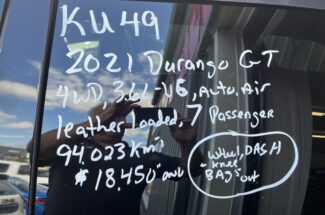 KU49
2021 Durango GT
4WD, 3.6L-V6, Auto, Air
leather Loaded, 7 Passenger
94,023 km's
$18,450
wheel, DASH
- knee
BAgs out